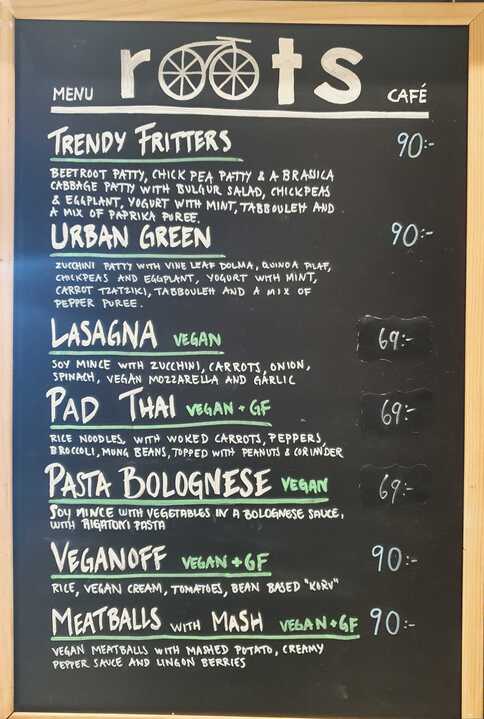 MENU roots CAFÉ
TRENDY FRITTERS 90:-
BEETROOT PATTY, CHICK PEA PATTY & A BRASSICA
CABBAGE PATTY WITH BULGUR SALAD, CHICKPEAS
& EGGPLANT, YOGURT WITH MINT, TABBOULEH AND
A MIX OF PAPRIKA PUREE.
URBAN GREEN 90:-
ZUCCHINI PATTY WITH VINE LEAF DOLMA, QUINOA PILAF,
CHICKPEAS AND EGGPLANT, YOGURT WITH MINT,
CARROT TZATZIKI, TABBOULEH AND A MIX OF
PEPPER PUREE.
LASAGNA VEGAN 69:-
SOY MINCE WITH ZUCCHINI, CARROTS, ONION,
SPINACH, VEGAN MOZZARELLA AND GARLIC
PAD THAI VEGAN + GF 69:-
RICE NOODLES, WITH WOKED CARROTS, PEPPERS,
BROCCOLI, MUNG BEANS, TOPPED WITH PEANUTS & CORIANDER
PASTA BOLOGNESE VEGAN 69:-
SOY MINCE WITH VEGETABLES IN A BOLOGNESE SAUCE,
WITH RIGATONI PASTA
VEGANOFF VEGAN + GF 90:-
RICE, VEGAN CREAM, TOMATOES, BEAN BASED "KORV"
MEATBALLS WITH MASH VEGAN + GF 90:-
VEGAN MEATBALLS WITH MASHED POTATO, CREAMY
PEPPER SAUCE AND LINGON BERRIES